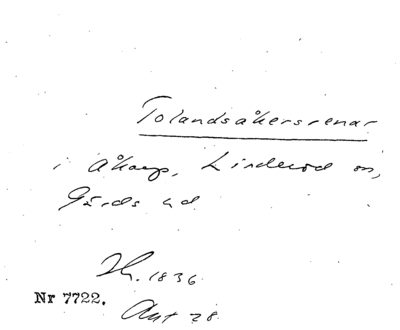 Tolandsåkersrenar
i Åkarp, Linderöd sn,
Gärds hd
Ih. 1836.
Nr 7722.
Akt 28